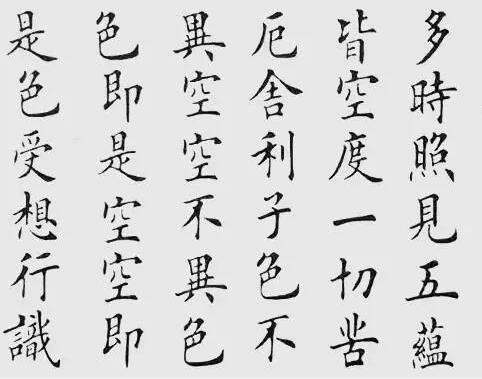 多時照見五蘊
皆空度一切苦
厄舍利子色不
異空空不異色
色即是空空即
是色受想行識